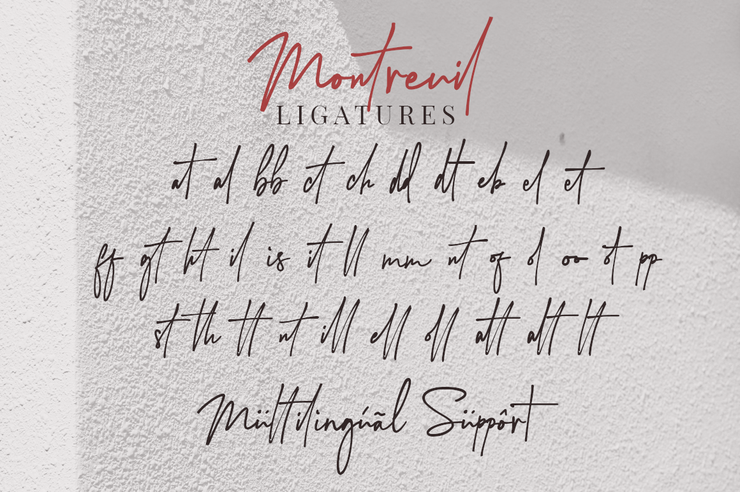 Montreuil
LIGATURES
at al bb ct ch dd dt eb el et
ff gt ht il is it ll mm nt of ol oo ot pp
st th tt ut ill ell oll att alt lt
Mültilingúãl Süppôrt